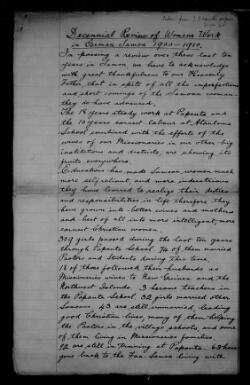 Taken from J. E. Newell's papers
Decennial Review of Womens Work
in German Samoa 1900–1910.
In passing a review over these last ten
years in Samoa, we have to acknowledge
with great thankfulness to our Heavenly
Father, that in spite of all the imperfections
and short comings of the Samoan women
they do have advanced.
The 18 years steady work at Papauta and
the 10 years earnest labour at Atauloma
School combined with the efforts of the
wives of our Missionaries in our other big
institutions and districts, are showing its
fruits everywhere.
Education has made Samoan women much
more self reliant and more industrious
they have learned to realize their duties
and responsibilities in life therefore they
have grown into better wives and mothers
and best of all into more intelligent, more
earnest Christian women.
309 girls passed during the last ten years
through Papauta School. 74 of them married
Pastors and Students during this time
18 of those followed their husbands as
Missionaries wives to New Guinea and the
Northwest Islands. 3 became teachers in the
Papauta School. 32 girls married other
Samoans. 43 are still unmarried, leading
good Christian lives, many of them helping
the Pastors in the village schools, and some
of them living in Missionaries families
92 are still in training at Papauta. 63 have
gone back to the Faa Samoa living with